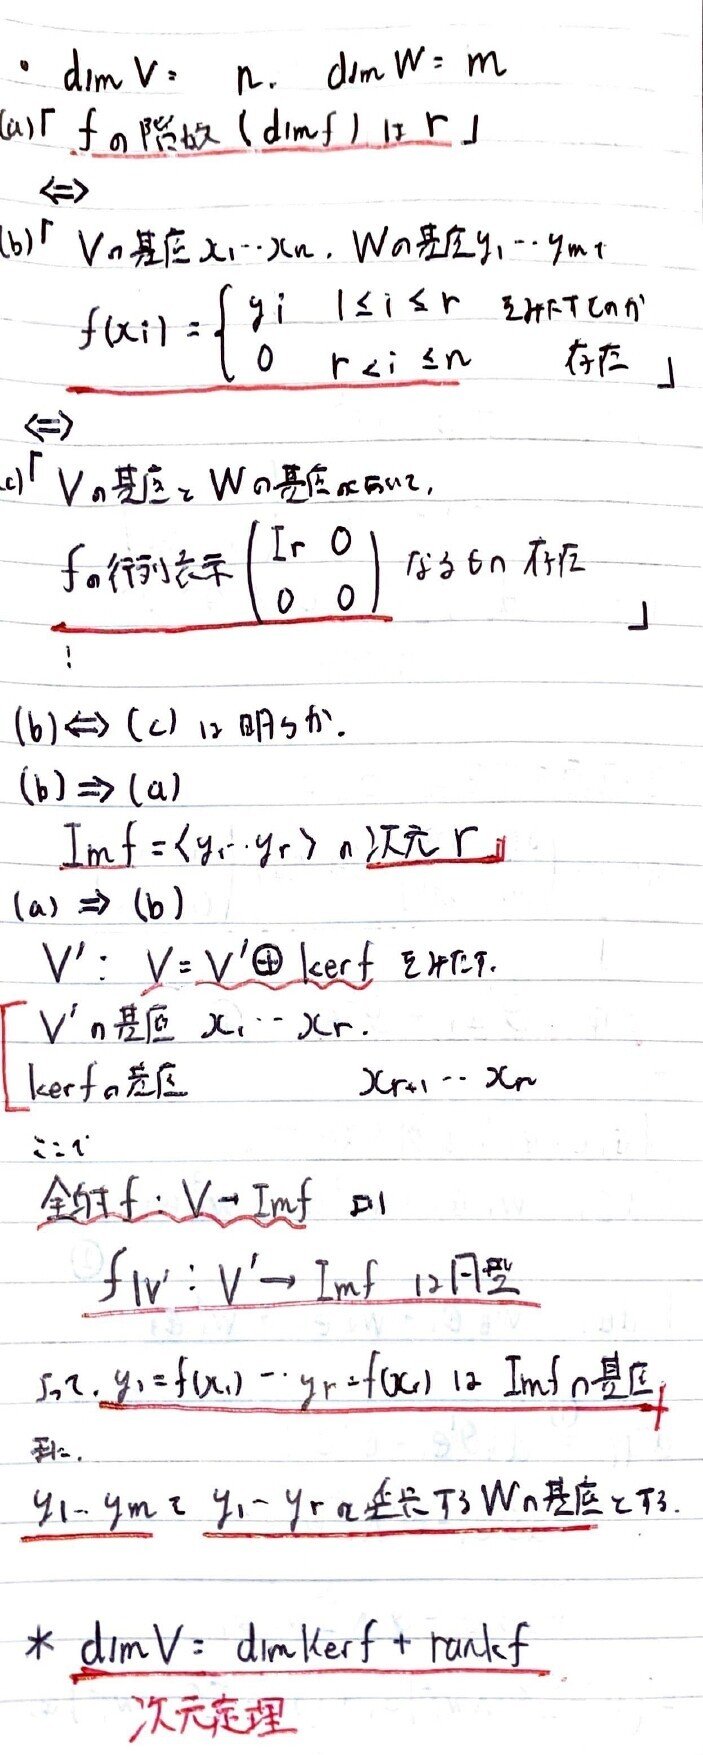 ・ dim V = n. dim W = m
(a)「fの階数 (dim f) は r」
⇔
(b)「Vの基底 x₁…xₙ. Wの基底 y₁…yₘで
f(xᵢ) = { yᵢ 1≤i≤r をみたすものが
0 r<i≤n 存在 」
⇔
c)「Vの基底と Wの基底において,
fの行列表示 ( Ir 0 なるもの 存在
0 0 ) 」
(b)⇔(c) は明らか.
(b)⇒(a)
Im f = <y₁…yᵣ> の次元 r
(a)⇒(b)
V': V = V'⊕ker f をみたす.
V'の基底 x₁…xᵣ.
ker fの基底 xᵣ₊₁…xₙ
ここで
全射 f : V→Im f より
f|V' : V'→Im f は同型
よって. y₁=f(x₁) … yᵣ=f(xᵣ) は Im fの基底
y₁…yₘ を y₁…yᵣ 延長する Wの基底とする.
* dim V = dim ker f + rank f
次元定理